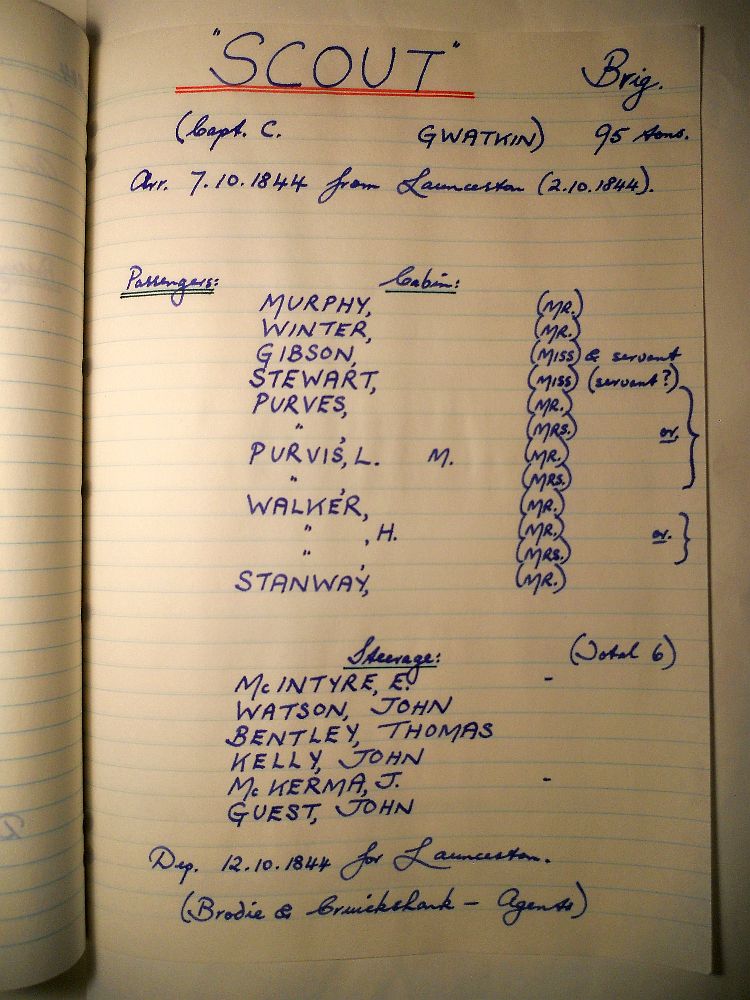 "SCOUT" Brig.
(Capt. C. GWATKIN) 95 tons.
Arr. 7.10.1844 from Launceston (2.10.1844).
Passengers: Cabin:
MURPHY, (MR.)
WINTER, (MR.)
GIBSON, (MISS) & servant
STEWART, (MISS) (servant?)
PURVES, (MR.)
" , (MRS.) or.
PURVIS, L. M. (MR.)
" , (MRS.)
WALKER, (MR.)
" , H. (MR.) or.
" , (MRS.)
STANWAY, (MR.)
Steerage: (Total 6)
McINTYRE, E. -
WATSON, JOHN
BENTLEY, THOMAS
KELLY, JOHN
McKERMA, J. -
GUEST, JOHN
Dep. 12.10.1844 for Launceston.
(Brodie & Cruickshank - Agents)